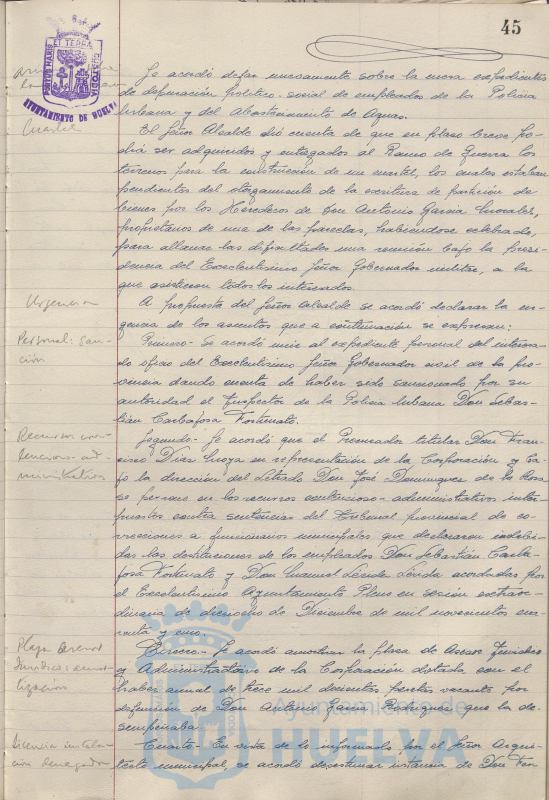 45
PORTUS MARIS ET TERRAE CUSTODIA
AYUNTAMIENTO DE HUELVA
Se acordó dejar nuevamente sobre la mesa expedientes
de depuración político-social de empleados de la Policía
Urbana y del Abastecimiento de Aguas.
Cuartel
El Señor Alcalde dió cuenta de que en plazo breve po-
drá ser adquiridos y entregados al Ramo de Guerra los
terrenos para la construcción de un cuartel, los cuales estaban
pendientes del otorgamiento de la escritura de partición de
bienes por los Herederos de Don Antonio García Morales,
propietarios de una de las parcelas, habiéndose celebrado,
para allanar las dificultades una reunión bajo la presi-
dencia del Excelentísimo Señor Gobernador militar, a la
que asistieron todos los interesados.
Urgencia
A propuesta del Señor Alcalde se acordó declarar la ur-
gencia de los asuntos que a continuación se expresan:
Personal: San-
ción
Primero- Se acordó unir al expediente personal del interesa-
do oficio del Excelentísimo Señor Gobernador civil de la pro-
vincia dando cuenta de haber sido sancionado por su
autoridad el Inspector de la Policía Urbana Don Sebas-
tián Carbajosa Fortunato.
Recursos con-
tencioso-ad-
ministrativos
Segundo- Se acordó que el Procurador titular Don Fran-
cisco Díaz en representación de la Corporación y ba-
jo la dirección del Letrado Don José Domínguez de la Rosa
se persone en los recursos contencioso-administrativos inter-
puestos contra sentencias del Tribunal provincial de co-
rrecciones a funcionarios municipales que declararon indebi-
das las destituciones de los empleados Don Sebastián Carba-
josa Fortunato y Don Manuel acordadas por
el Excelentísimo Ayuntamiento Pleno en sesión extraor-
dinaria de dieciocho de Diciembre de mil novecientos cua-
renta y uno.
Plaza Asesor
Jurídico: amor-
tización
Tercero- Se acordó amortizar la plaza de Asesor Jurídico
y Administrativo de la Corporación dotada con el
haber anual de trece mil doscientas pesetas vacante por
defunción de Don Antonio García Rodríguez que la de-
sempeñaba.
Licencia instala-
ción denegada
Cuarto- En vista de lo informado por el Señor Arqui-
tecto municipal, se acordó desestimar instancia de Don
Ayuntamiento de
HUELVA